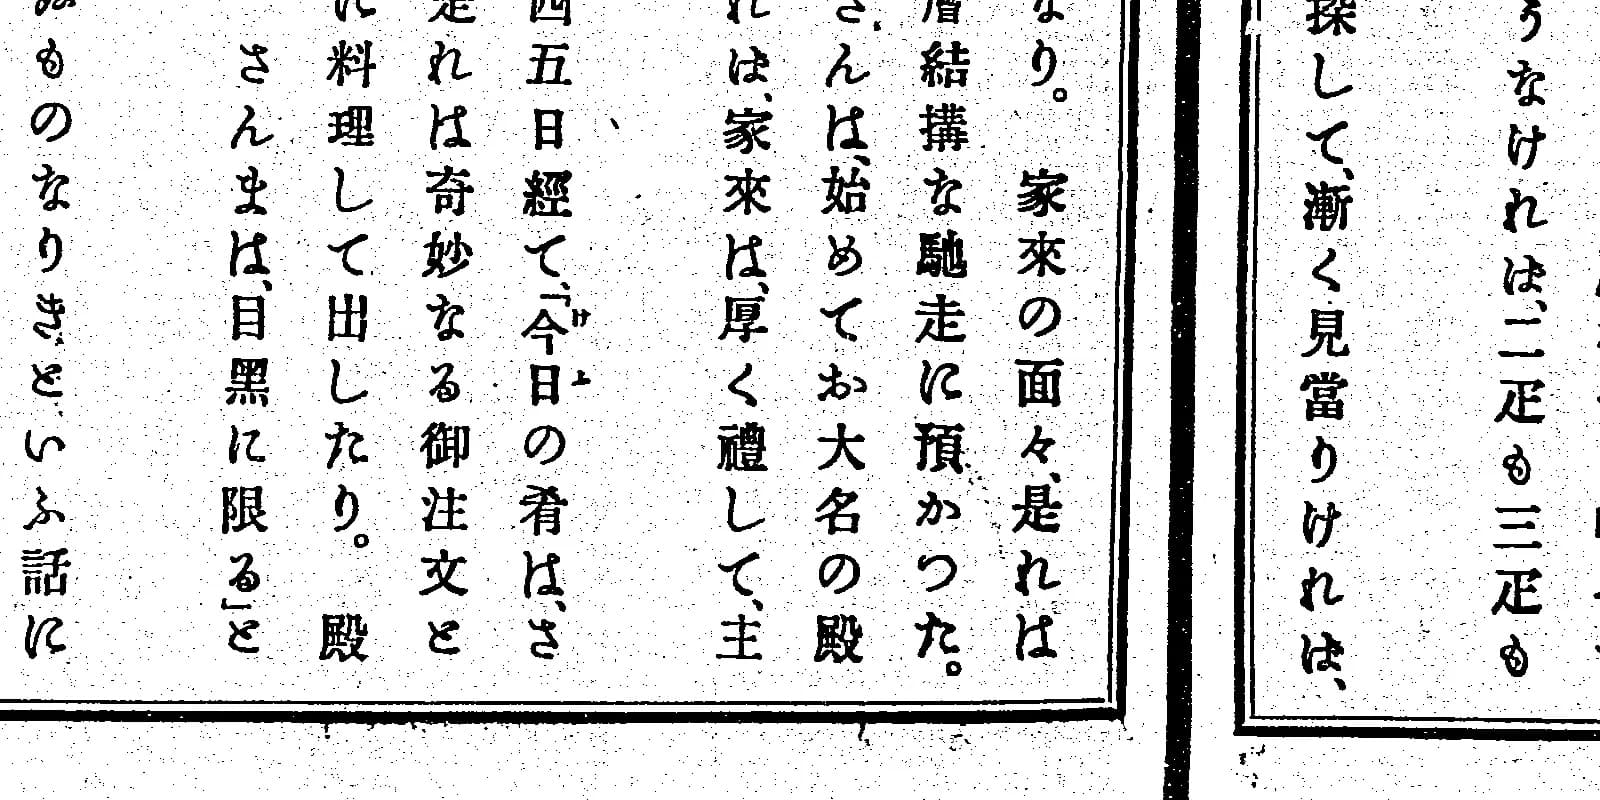 うなければ、二疋も三疋も
探して、漸く見當りければ、
なり。　家來の面々、是れは
層結搆な馳走に預かつた。
さんは、始めてお大名の殿
れば、家來は、厚く禮して、主
四五日經て、「今日の肴は、さ
是れは奇妙なる御注文と
に料理して出したり。　殿
さんまは、目黑に限る」と
ものなりき、といふ話に